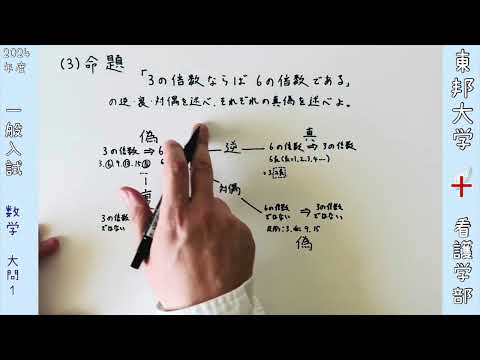 2024年度
一般入試
数学
大問1
(3) 命題
「3の倍数ならば 6の倍数である」
の逆・裏・対偶を述べ、それぞれの真偽を述べよ。
偽
3の倍数 ⇒ 6
3, 6, 9, 12, 15, 18
逆
真
6の倍数 ⇒ 3の倍数
6k (k=1, 2, 3, 4 …)
=3・2k
裏
対偶
3の倍数
ではない
6の倍数
ではない
⇒ 3の倍数
ではない
反例: 3, 9, 15
偽
東邦大学
看護学部